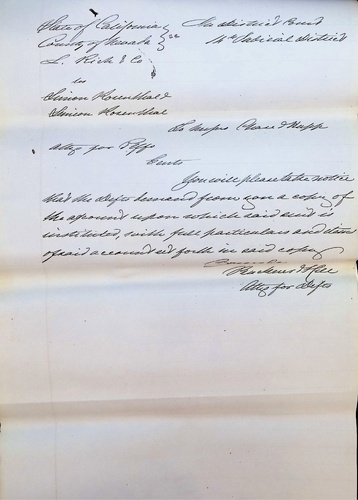 State of California } ss In District Court
County of Nevada 14th Judicial District
L. Rich & Co
vs
Simon Rosenthal &
Simon Rosenthal
To Messrs Chase &
Attys for Plffs
Gents
You will please take notice
that the Defts demand from you a copy of
the account upon which said suit is
instituted, with full particulars and items
of said account set forth in said copy
& Hill
Attys for Defts